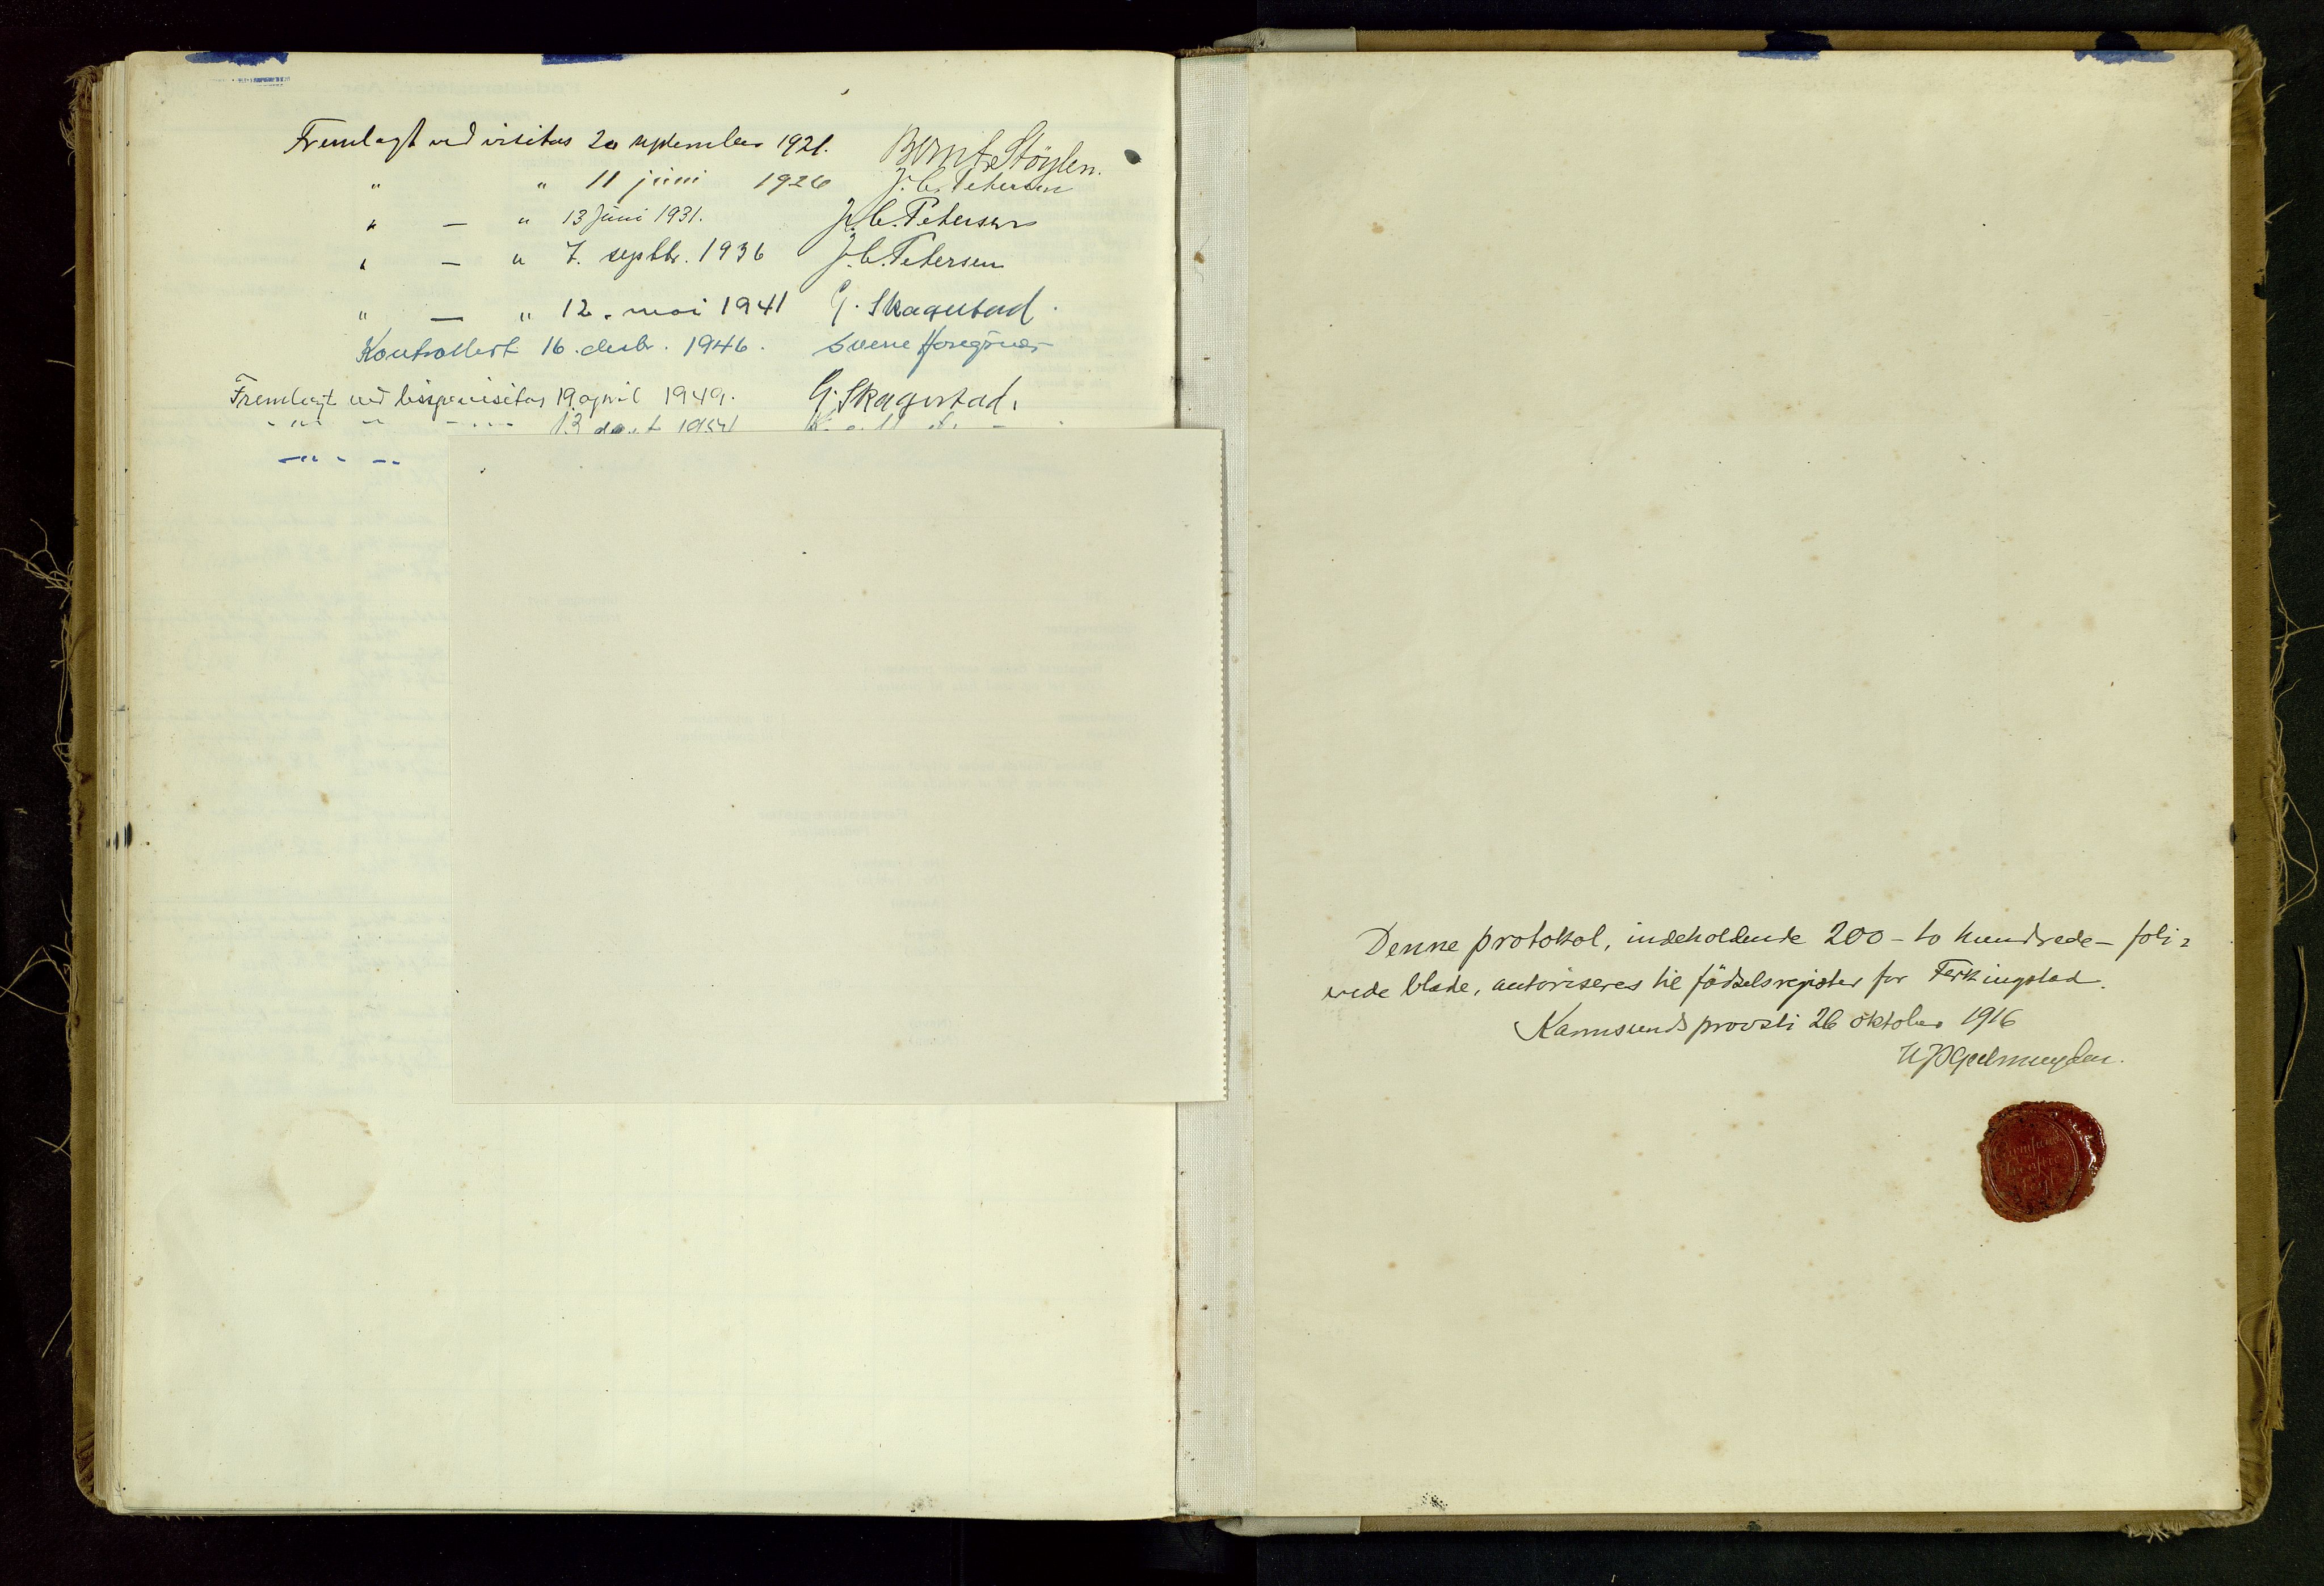 Fremlagt ved visitas 20 september 1921. Bernt Støylen.
" " 11 juni 1926 J. C. Petersen
" — " 13 Juni 1931. J. C. Petersen
" — " 7. septbr. 1936 J. C. Petersen
" — " 12. mai 1941 G. Skagestad.
Kontrollert 16. desbr. 1946. Sverre
Fremlagt ved bispevisitas 19. april 1949. G. Skagestad.
13 1954
Denne protokol, indeholdende 200 - to hundrede - foli=
erede blade, autoriseres til fødselsregister for Ferkingstad.
Karmsunds provsti 26 oktober 1916
Gjelmuyden.